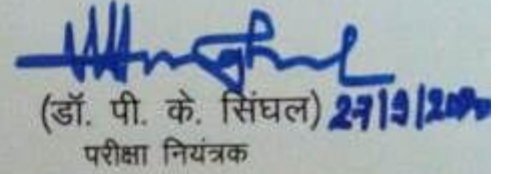 (डॉ. पी. के. सिंघल) 27/9/
परीक्षा नियंत्रक